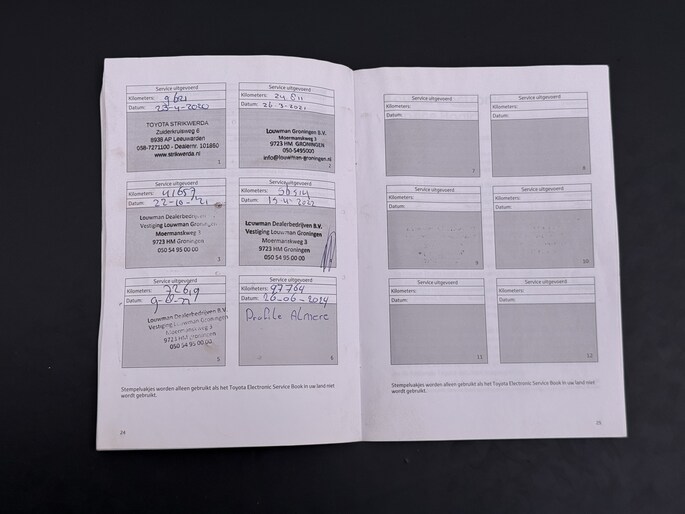 Service uitgevoerd
Kilometers: 9621
Datum: 23-4-2020
TOYOTA STRIKWERDA
Zuiderkruisweg 6
8938 AP Leeuwarden
058-7271100 - Dealernr. 101850
www.strikwerda.nl
1
Service uitgevoerd
Kilometers: 24 811
Datum: 26-3-2021
Louwman Groningen B.V.
Moermanskweg 3
9723 HM GRONINGEN
050-5495000
info@louwman-groningen.nl
2
Service uitgevoerd
Kilometers: 41657
Datum: 22-10-'21
Louwman Dealerbedrijven
Vestiging Louwman Groningen
Moermanskweg 3
9723 HM Groningen
050 54 95 00 00
3
Service uitgevoerd
Kilometers:
Datum: 2022
Louwman Dealerbedrijven B.V.
Vestiging Louwman Groningen
Moermanskweg 3
9723 HM Groningen
050 54 95 00 00
Service uitgevoerd
Kilometers:
Datum:
Louwman Dealerbedrijven B.V.
Vestiging Louwman Groningen
Moermanskweg 3
9723 HM Groningen
050 54 95 00 00
5
Service uitgevoerd
Kilometers: 97764
Datum: 26-06-2024
Profile Almere
6
Stempelvakjes worden alleen gebruikt als het Toyota Electronic Service Book in uw land niet
wordt gebruikt.
24
Service uitgevoerd
Kilometers:
Datum:
7
Service uitgevoerd
Kilometers:
Datum:
8
Service uitgevoerd
Kilometers:
Datum:
9
Service uitgevoerd
Kilometers:
Datum:
10
Service uitgevoerd
Kilometers:
Datum:
11
Service uitgevoerd
Kilometers:
Datum:
12
Stempelvakjes worden alleen gebruikt als het Toyota Electronic Service Book in uw land niet
wordt gebruikt.
25